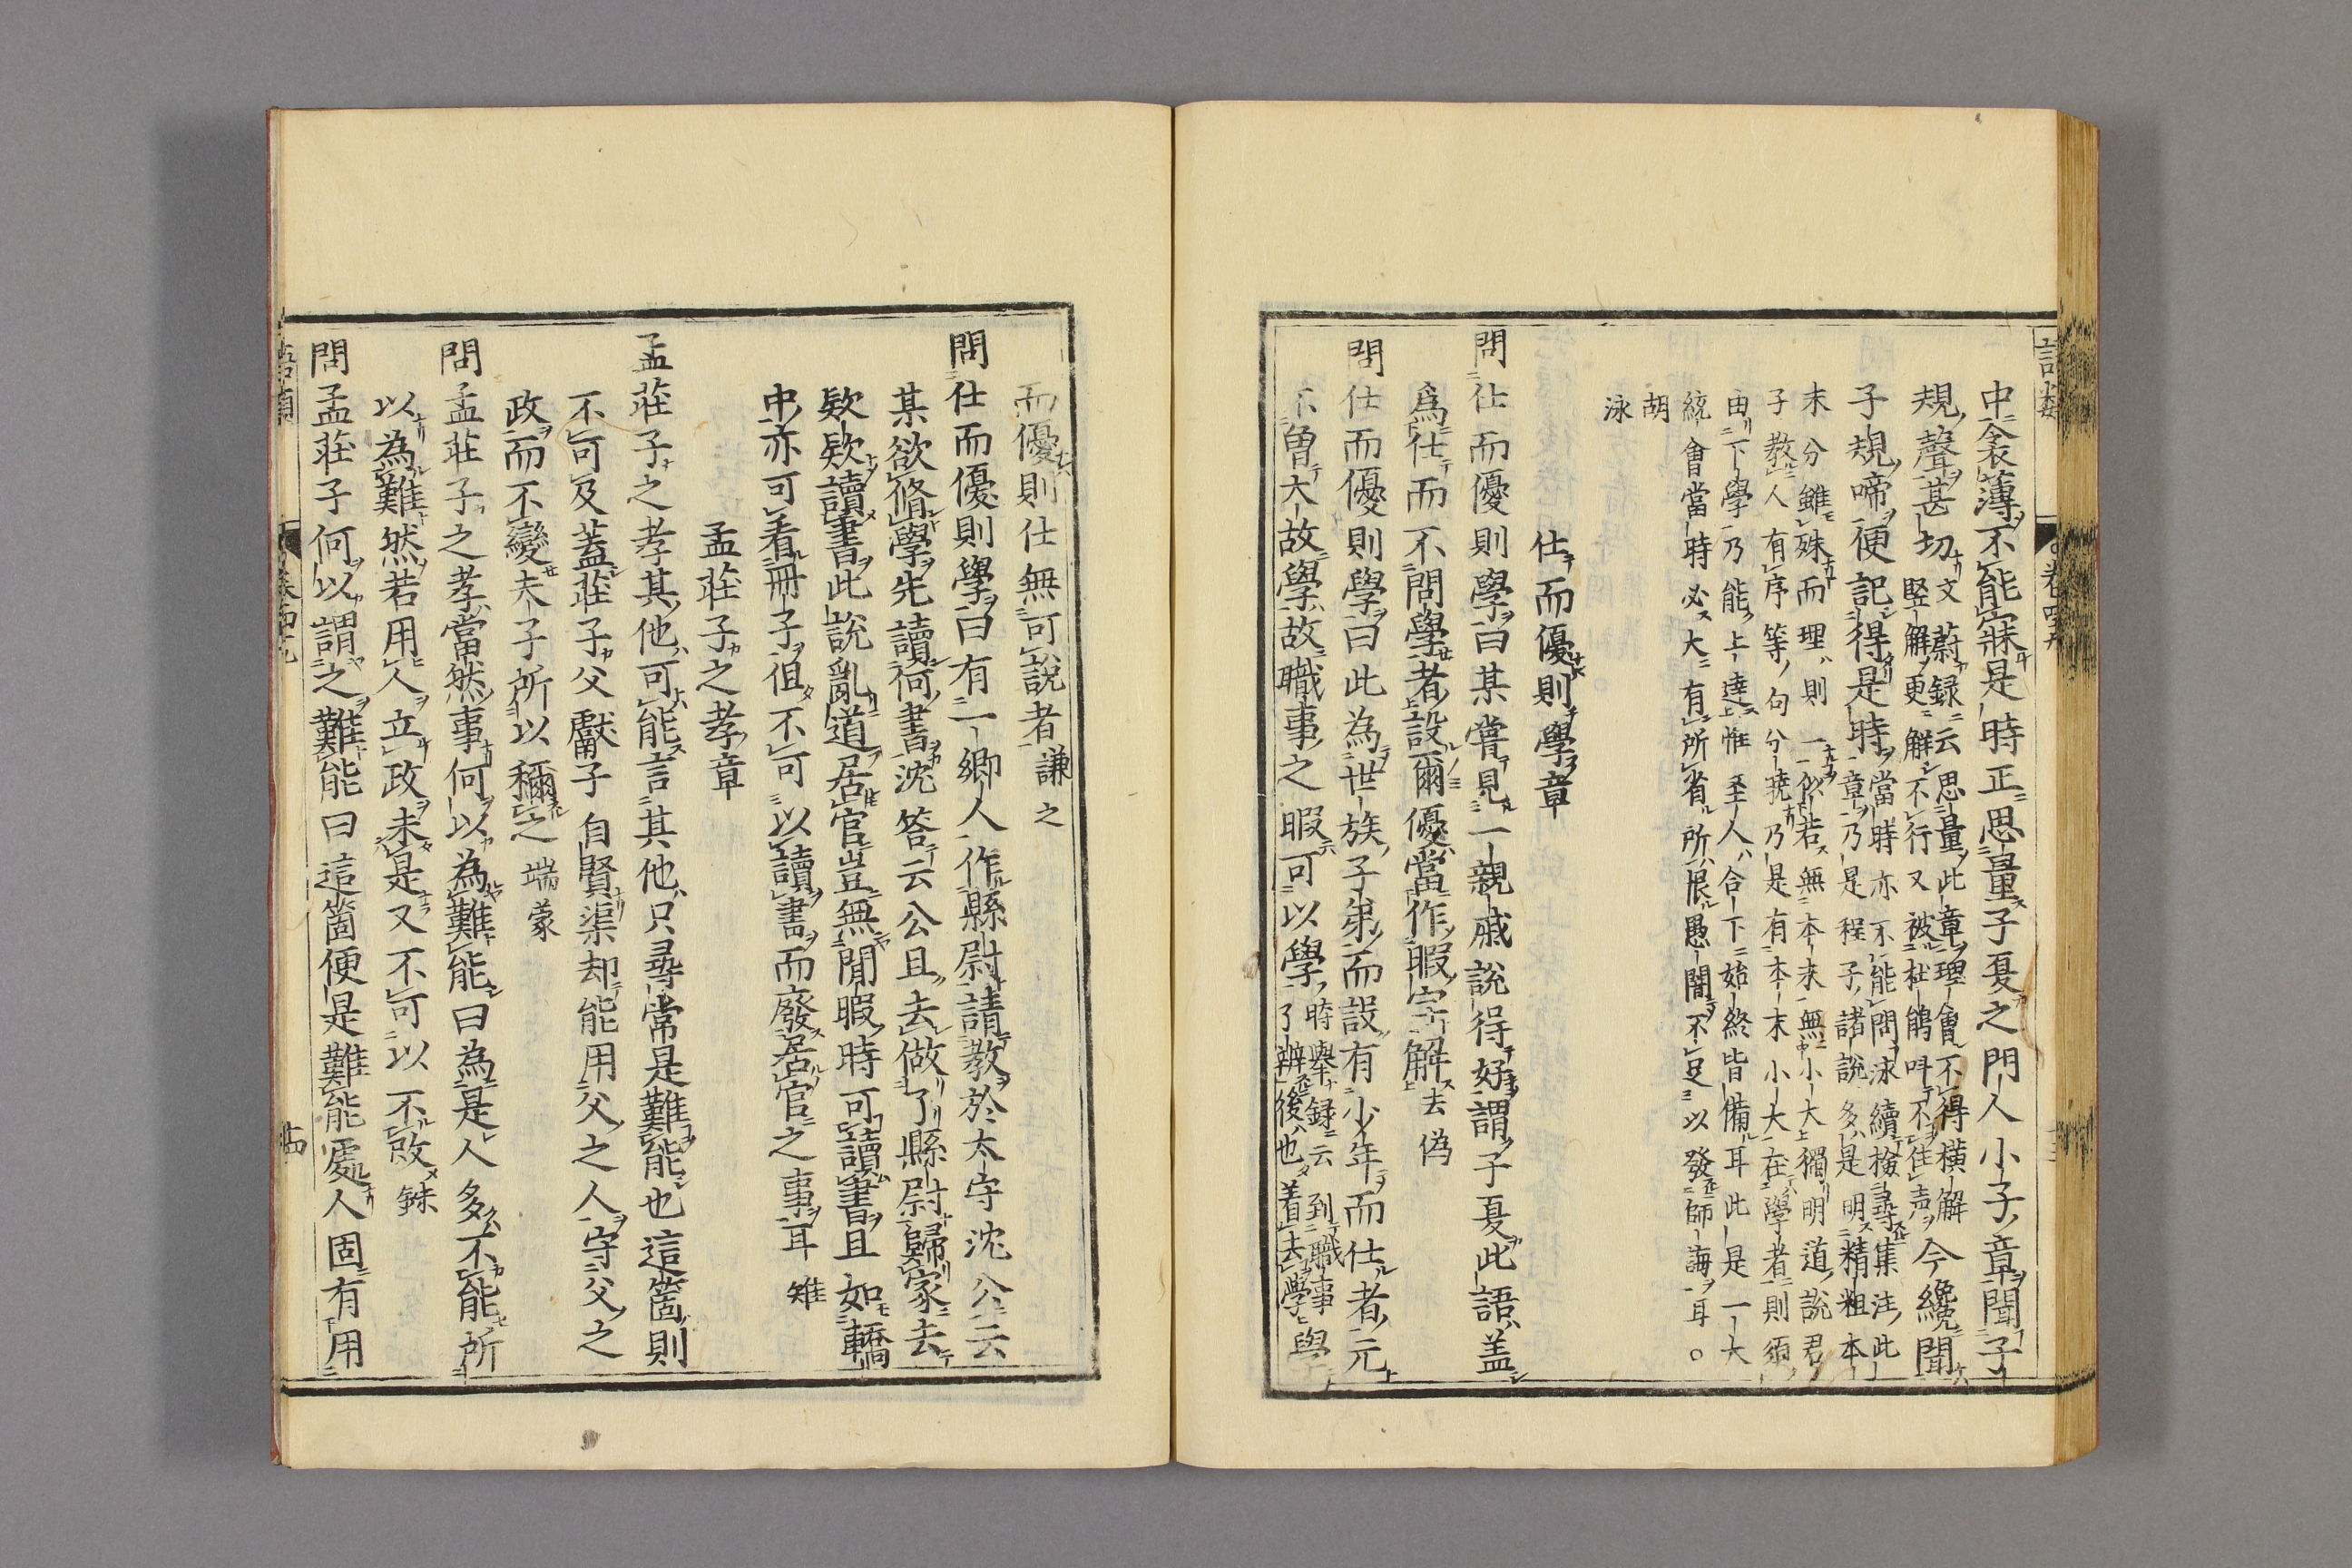 中衾薄不能寐是時正思量子夏之門人小子章聞子
規聲甚切文蔚録云思量此章理會不得橫解
竪解更解不行又被杜鵑叫不住声今纔聞
子規啼便記得是時當時亦不能問泳續檢尋集注此
一章乃是程子諸說多是明精粗本
末分雖殊而理則一似若無本末無小大獨明道說君
子教人有序等句分曉乃是有本末小大在學者則須
由下學乃能上達惟至人合下始終皆備耳此是一大
統會當時必大有所省所恨愚闇不足以發師誨耳。
胡
泳
仕而優則學章
問仕而優則學曰某嘗見一親戚說得好謂子夏此語盖
為仕而不問學者設爾優當作暇字解去偽
問仕而優則學曰此為世族子弟而設有少年而仕者元
不曽大故學故職事之暇可以學時舉録云到職事
了辨後也着去學
而優則仕無可說者謙之
問仕而優則學曰有一鄉人作縣尉請教於太守沈公云
某欲脩學先讀何書沈答云公且去做了縣尉歸家去
欵欵讀書此說亂道居官豈無閒暇時可讀書且如轎
中亦可看冊子但不可以讀書而廢居官之事耳雉
孟莊子之孝章
孟莊子之孝其他可能言其他只尋常是難能也這箇則
不可及蓋莊子父獻子自賢渠却能用父之人守父之
政而不變夫子所以稱之端蒙
問孟莊子之孝當然事何以為難能曰為是人多不能所
以為難然若用人立政未是又不可以不改銖
問孟莊子何以謂之難能曰這箇便是難能處人固有用
語類
卷四十九